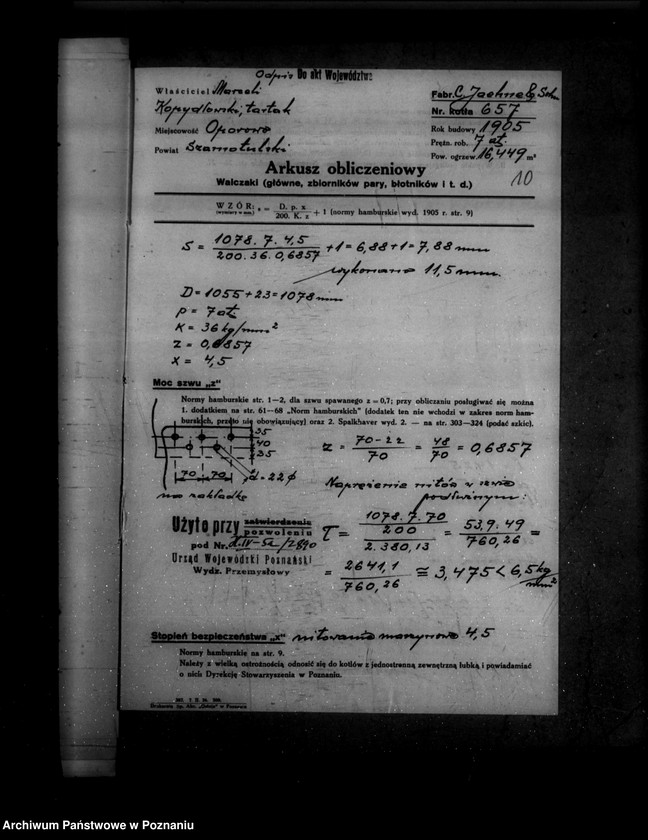 Odpis Do akt Województwa
Właściciel Marceli
Kopydłowski, tartak
Miejscowość Oporowo
Powiat Szamotulski
Fabr. C. Jaehne & Sohn
Nr. kotła 657
Rok budowy 1905
Prężn. rob. 7 at.
Pow. ogrzew. 16,449 m²
Arkusz obliczeniowy
10
Walczaki (główne, zbiorników pary, błotników i t. d.)
WZÓR: s = D. p. x / 200. K. z + 1 (normy hamburskie wyd. 1905 r. str. 9)
(wymiary w mm)
S = 1078. 7. 4,5 / 200. 36. 0,6857 + 1 = 6,88 + 1 = 7,88 mm
wykonano 11,5 mm.
D = 1055 + 23 = 1078 mm
p = 7 at.
K = 36 kg/mm²
z = 0,6857
x = 4,5
Moc szwu „z"
Normy hamburskie str. 1—2, dla szwu spawanego z = 0,7; przy obliczaniu posługiwać się można
1. dodatkiem na str. 61—68 „Norm hamburskich" (dodatek ten nie wchodzi w zakres norm ham-
burskich, przeto nie obowiązujący) oraz 2. Spalkhaver wyd. 2. — na str. 303—324 (podać szkic).
35
40
35
70 70
d = 22 φ
na zakładkę
z = 70 - 22 / 70 = 48 / 70 = 0,6857
Naprężenie nitów w szwie
podłużnym:
τ = 1078. 7. 70 / 200 / 2. 380,13 = 53,9. 49 / 760,26 =
= 2641,1 / 760,26 ≅ 3,475 < 6,5 kg/mm²
Użyto przy zatwierdzenia
pozwolenia
pod Nr.
Urząd Wojewódzki Poznański
Wydz. Przemysłowy
Stopień bezpieczeństwa „x" nitowanie maszynowe 4,5
Normy hamburskie na str. 9.
Należy z wielką ostrożnością odnosić się do kotłów z jednostronną zewnętrzną łubką i powiadamiać
o nich Dyrekcję Stowarzyszenia w Poznaniu.
Archiwum Państwowe w Poznaniu